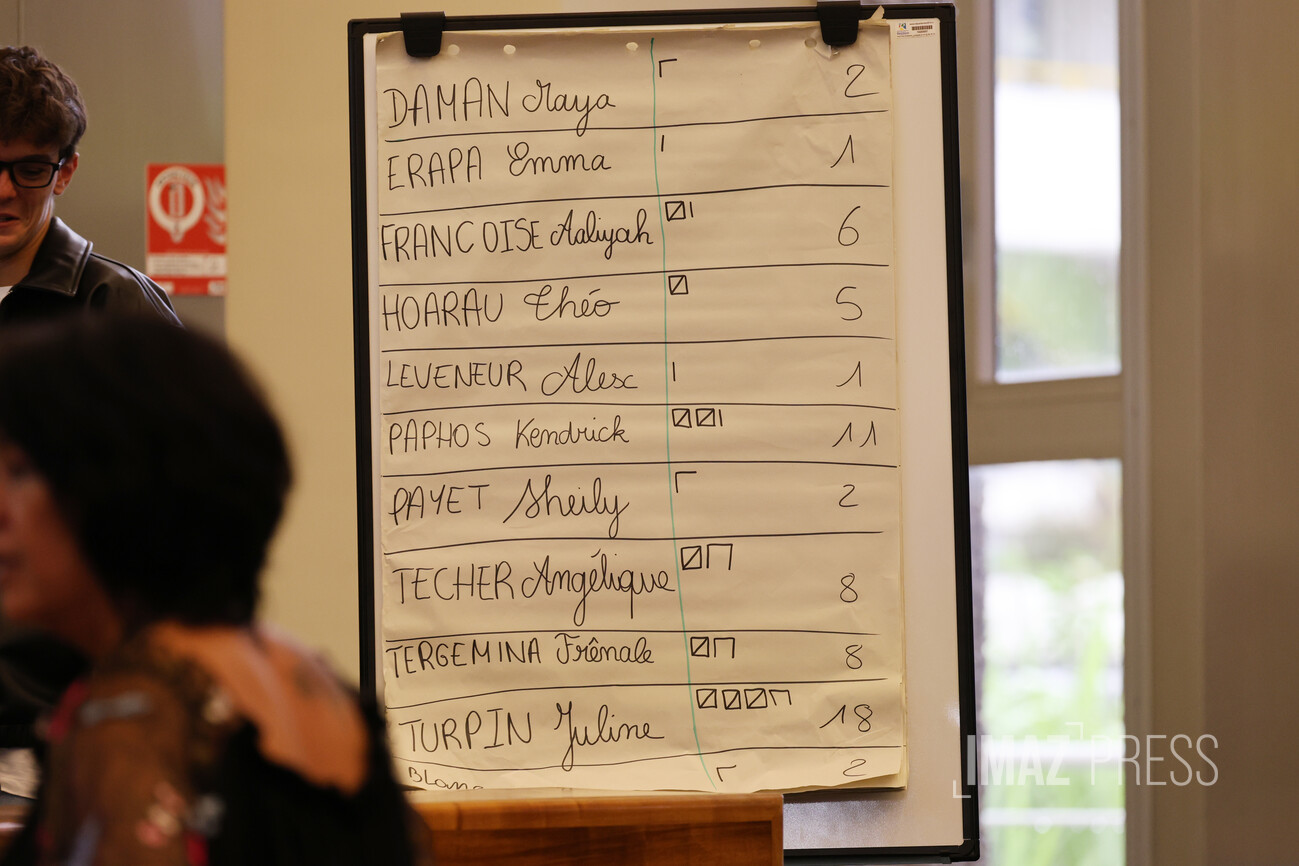 DAMAN Maya 2
ERAPA Emma 1
FRANCOISE Aaliyah 6
HOARAU Théo 5
LEVENEUR Alex 1
PAPHOS Kendrick 11
PAYET Sheily 2
TECHER Angélique 8
TERGEMINA Frênale 8
TURPIN Juline 18
Blanc 2
IMAZ PRESS